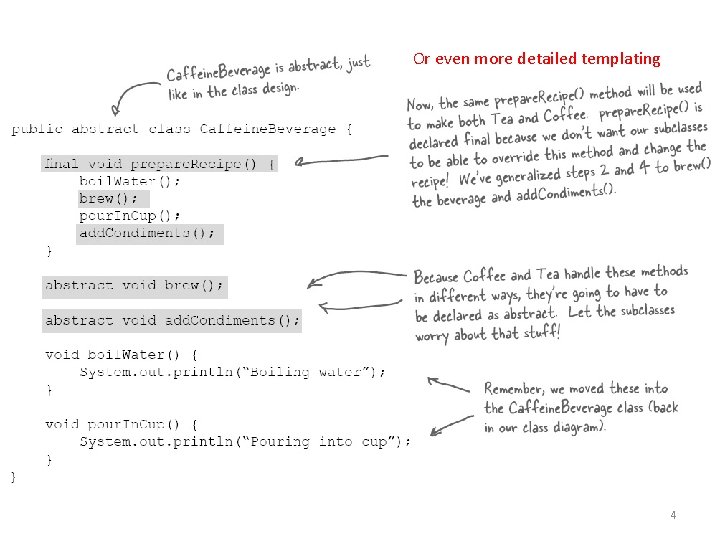 Or even more detailed templating
Caffeine.Beverage is abstract, just
like in the class design.
public abstract class Caffeine.Beverage {
final void prepare.Recipe() {
boilWater();
brew();
pourIn.Cup();
add.Condiments();
}
Now, the same prepare.Recipe() method will be used
to make both Tea and Coffee. prepare.Recipe() is
declared final because we don't want our subclasses
to be able to override this method and change the
recipe! We've generalized steps 2 and 4 to brew()
the beverage and add.Condiments().
abstract void brew();
abstract void add.Condiments();
Because Coffee and Tea handle these methods
in different ways, they're going to have to
be declared as abstract. Let the subclasses
worry about that stuff!
void boil.Water() {
System.out.println(“Boiling water”);
}
void pour.In.Cup() {
System.out.println(“Pouring into cup”);
}
}
Remember, we moved these into
the Caffeine.Beverage class (back
in our class diagram).
4